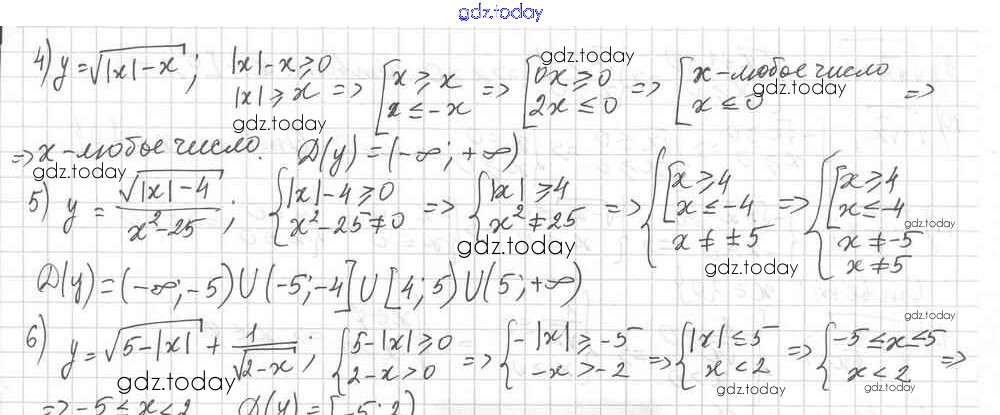 gdz.today
4) y = √(|x| - x) ; |x| - x ≥ 0
|x| ≥ x => [ x ≥ x
x ≤ -x => [ 0x ≥ 0
2x ≤ 0 => [ x - любое число
x ≤ 0 =>
gdz.today
gdz.today
gdz.today
=> x - любое число. D(y) = (-∞; +∞)
gdz.today
5) y = √(|x| - 4) / (x² - 25) ; { |x| - 4 ≥ 0
x² - 25 ≠ 0 => { |x| ≥ 4
x² ≠ 25 => { [ x ≥ 4
x ≤ -4
x ≠ ±5 => { [ x ≥ 4
x ≤ -4
x ≠ -5
x ≠ 5
gdz.today
gdz.today
gdz.today
D(y) = (-∞; -5) U (-5; -4] U [4; 5) U (5; +∞)
gdz.today
6) y = √(5 - |x|) + 1/√(2 - x) ; { 5 - |x| ≥ 0
2 - x > 0 => { -|x| ≥ -5
-x > -2 => { |x| ≤ 5
x < 2 => { -5 ≤ x ≤ 5
x < 2 =>
gdz.today
gdz.today
gdz.today
=> -5 ≤ x < 2 D(y) = [-5; 2)